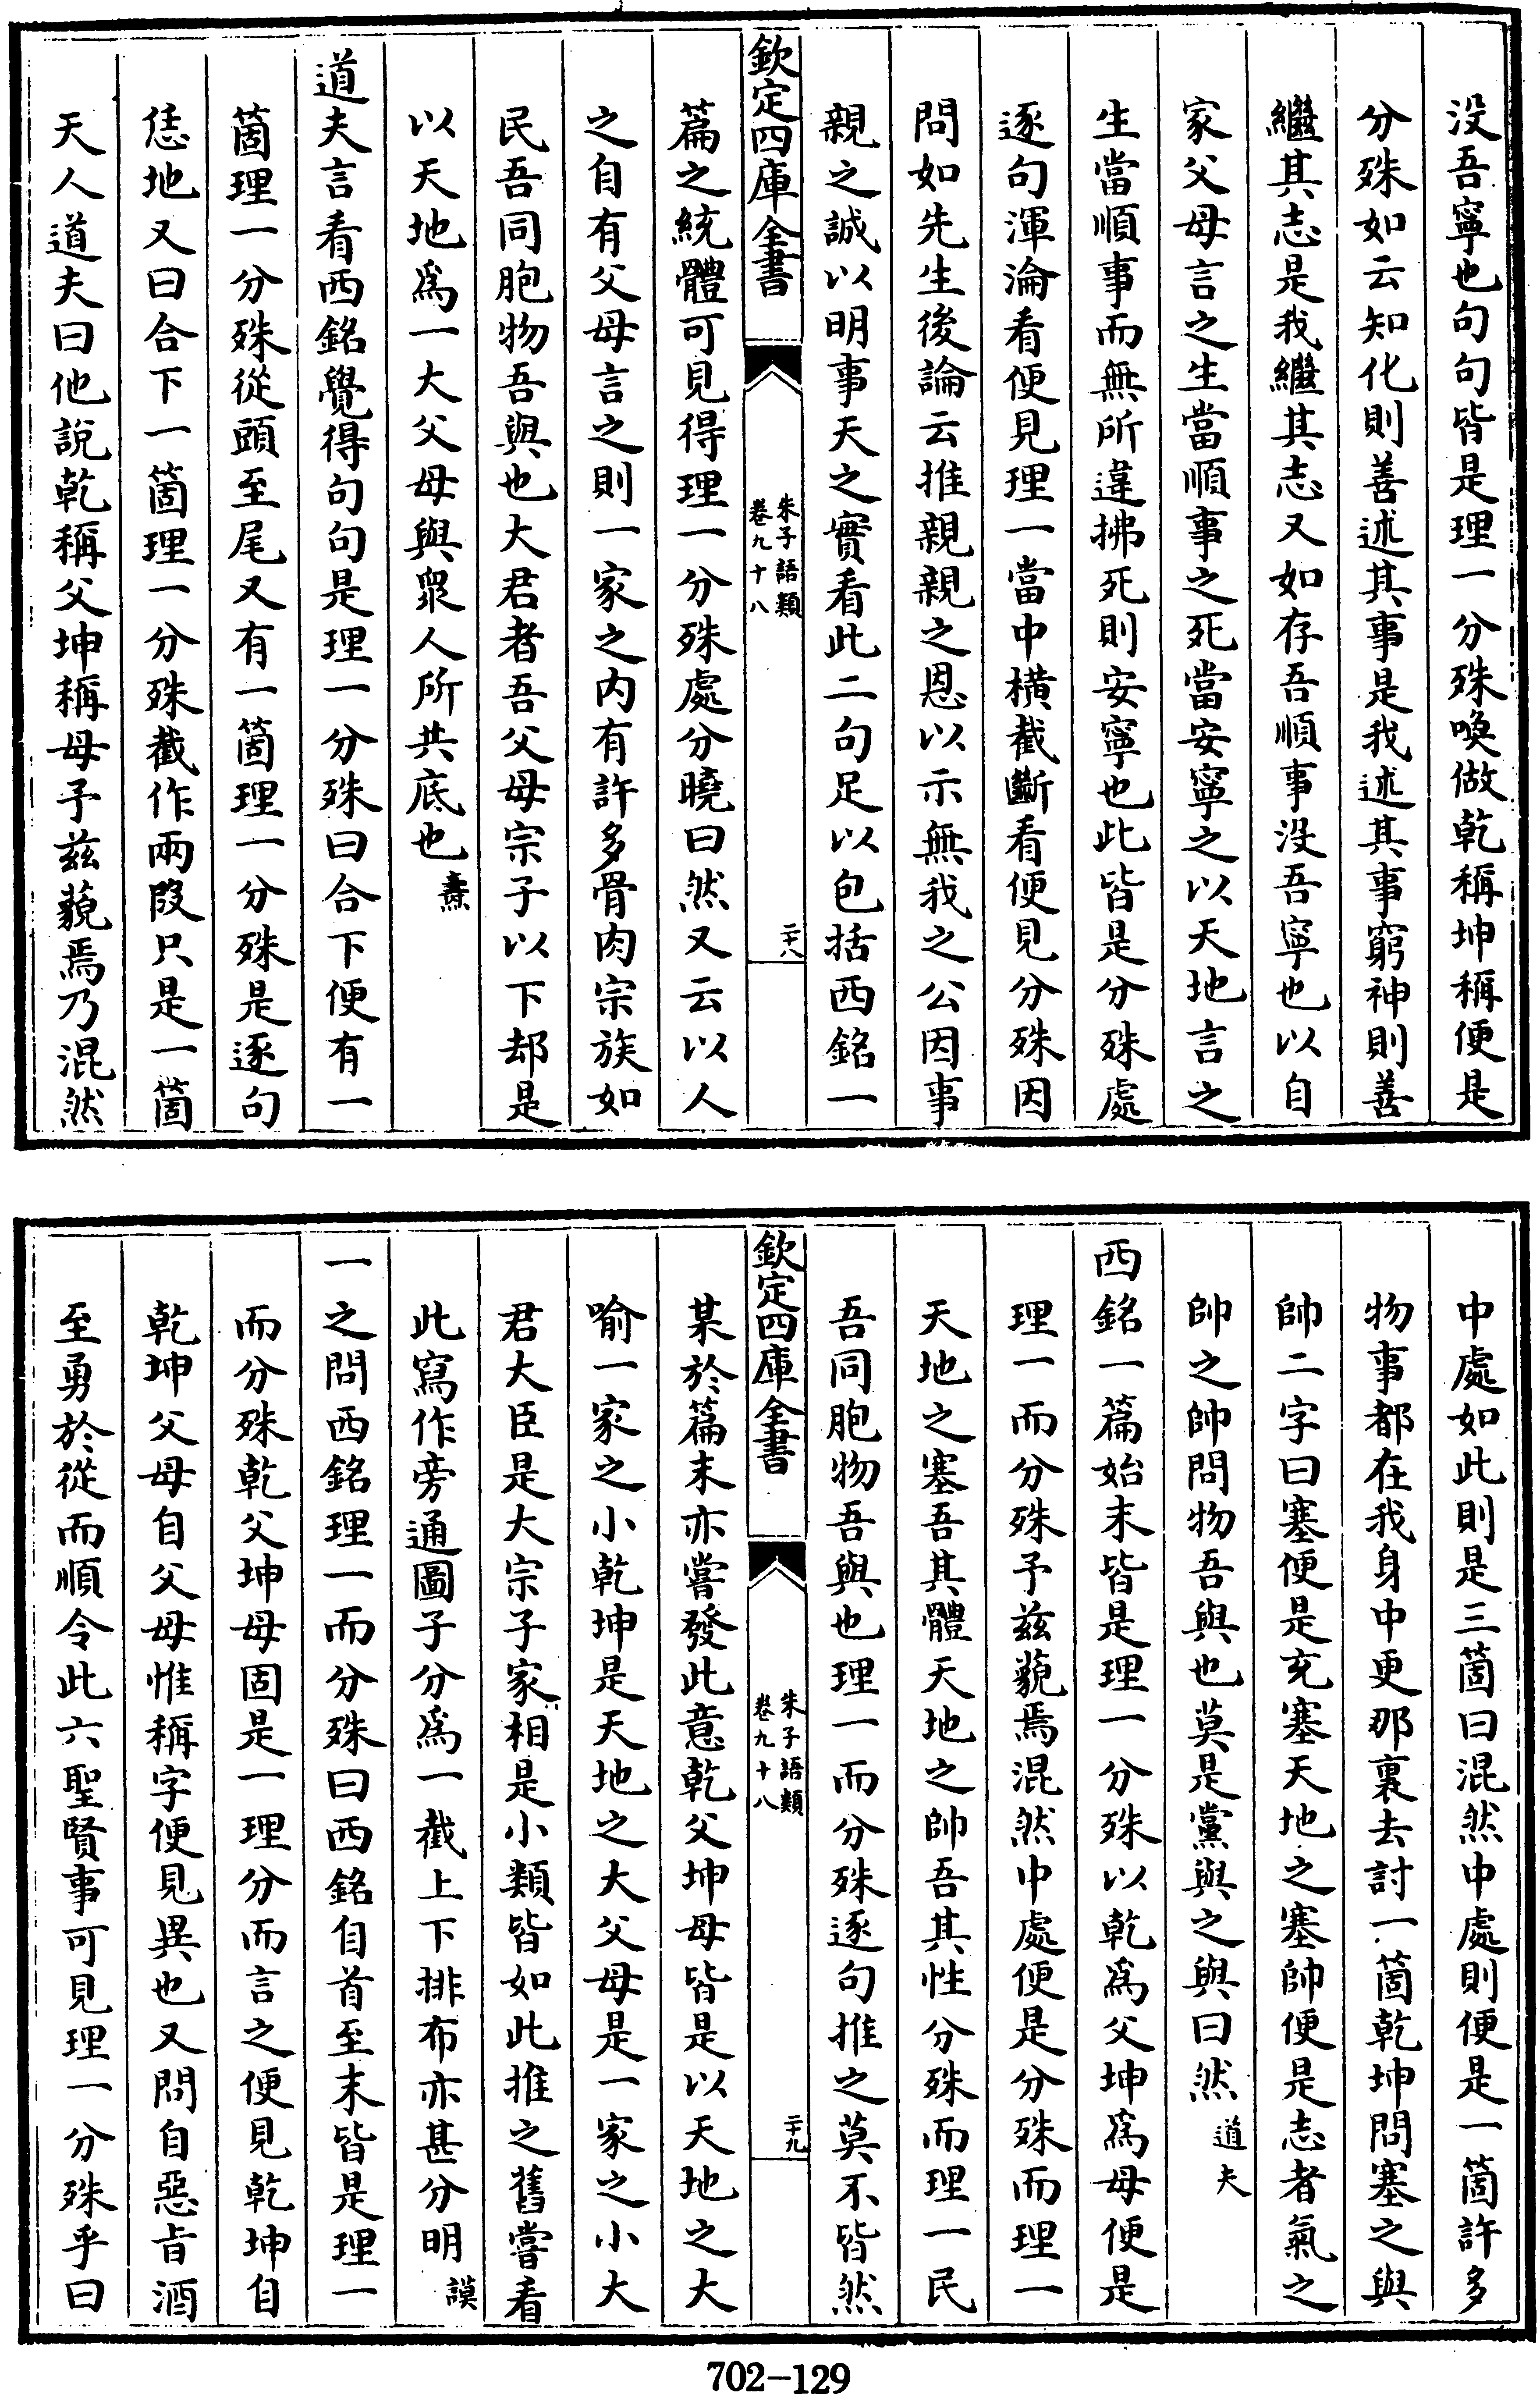 没吾寧也句句皆是理一分殊喚做乾稱坤稱便是
分殊如云知化則善述其事是我述其事窮神則善
繼其志是我繼其志又如存吾順事没吾寧也以自
家父母言之生當順事之死當安寧之以天地言之
生當順事而無所違拂死則安寧也此皆是分殊處
逐句渾淪看便見理一當中橫截斷看便見分殊因
問如先生後論云推親親之恩以示無我之公因事
親之誠以明事天之實看此二句足以包括西銘一
欽定四庫全書
朱子語類
卷九十八
二十八
篇之統體可見得理一分殊處分曉曰然又云以人
之自有父母言之則一家之内有許多骨肉宗族如
民吾同胞物吾與也大君者吾父母宗子以下却是
以天地爲一大父母與衆人所共底也燾
道夫言看西銘覺得句句是理一分殊曰合下便有一
箇理一分殊從頭至尾又有一箇理一分殊是逐句
恁地又曰合下一箇理一分殊截作兩段只是一箇
天人道夫曰他說乾稱父坤稱母予兹藐焉乃混然
中處如此則是三箇曰混然中處則便是一箇許多
物事都在我身中更那裏去討一箇乾坤問塞之與
帥二字曰塞便是充塞天地之塞帥便是志者氣之
帥之帥問物吾與也莫是黨與之與曰然道夫
西銘一篇始末皆是理一分殊以乾爲父坤爲母便是
理一而分殊予兹藐焉混然中處便是分殊而理一
天地之塞吾其體天地之帥吾其性分殊而理一民
吾同胞物吾與也理一而分殊逐句推之莫不皆然
欽定四庫全書
朱子語類
卷九十八
二十九
某於篇末亦嘗發此意乾父坤母皆是以天地之大
喻一家之小乾坤是天地之大父母是一家之小大
君大臣是大宗子家相是小類皆如此推之舊嘗看
此寫作旁通圖子分爲一截上下排布亦甚分明謨
一之問西銘理一而分殊曰西銘自首至末皆是理一
而分殊乾父坤母固是一理分而言之便見乾坤自
乾坤父母自父母惟稱字便見異也又問自惡旨酒
至勇於從而順令此六聖賢事可見理一分殊乎曰
702-129